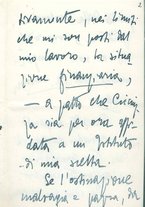 2
tivamente, nei limiti
che mi son posti dal
mio lavoro, la situa
zione finanziaria,
— a patto che
sia per ora affi
data a un Istituto
di mia scelta.
Se l'ostinazione
malvagia e pazza, da